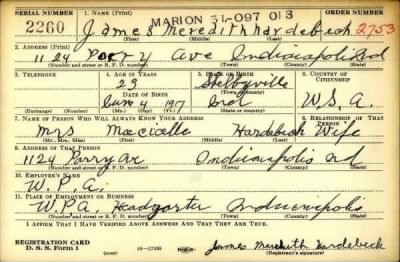 SERIAL NUMBER 1. NAME (Print) MARION 31-097 013 ORDER NUMBER
2260 James Meredith Hardebeck 2753
(First) (Middle) (Last)
2. ADDRESS (Print)
1124 Ave Indianapolis Ind
(Number and street or R. F. D. number) (Town) (County) (State)
3. TELEPHONE 4. AGE IN YEARS 5. PLACE OF BIRTH 6. COUNTRY OF CITIZENSHIP
23 Shelbyville
DATE OF BIRTH
4 Ind U.S.A.
(Exchange) (Number) (Mo.) (Day) (Yr.) (State or country)
7. NAME OF PERSON WHO WILL ALWAYS KNOW YOUR ADDRESS 8. RELATIONSHIP OF THAT PERSON
Mrs Hardebeck Wife
(Mr., Mrs., Miss) (First) (Middle) (Last)
9. ADDRESS OF THAT PERSON
1124 Parry Av Indianapolis nd
(Number and street or R. F. D. number) (Town) (County) (State)
10. EMPLOYER'S NAME
W.P.A.
11. PLACE OF EMPLOYMENT OR BUSINESS
W.P.A.
(Number and street or R. F. D. number) (Town) (County) (State)
I AFFIRM THAT I HAVE VERIFIED ABOVE ANSWERS AND THAT THEY ARE TRUE.
REGISTRATION CARD
D. S. S. Form 1 16-17105 James Meredith Hardebeck
(Registrant's signature)